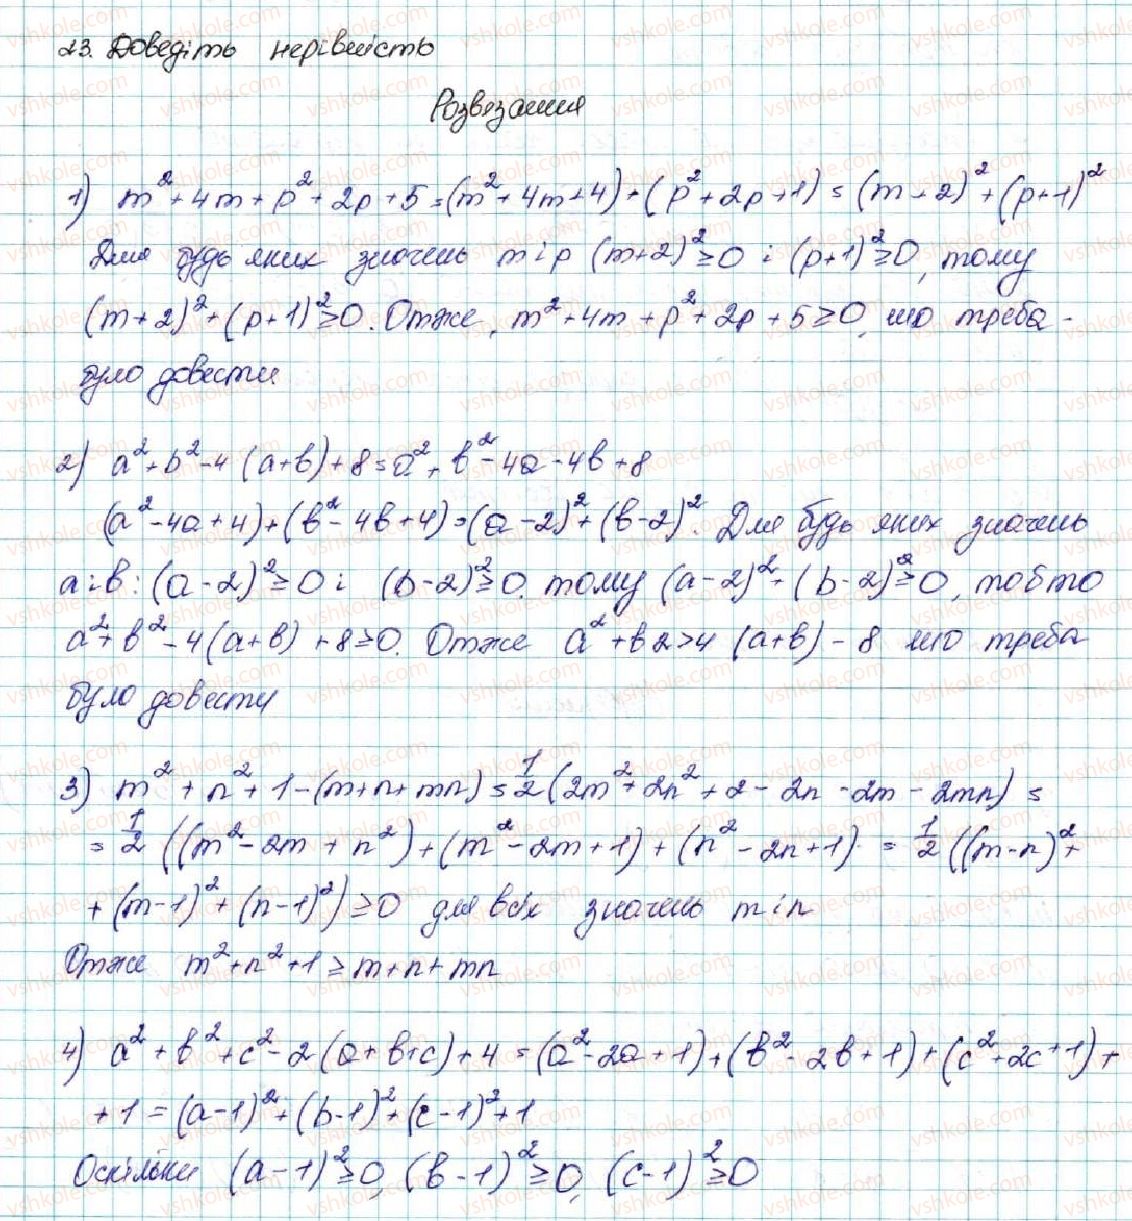 23. Доведіть нерівність
Розвязання
1) m² + 4m + p² + 2p + 5 = (m² + 4m + 4) + (p² + 2p + 1) = (m + 2)² + (p+1)²
Для будь яких значень m і p (m+2)² ≥ 0 і (p+1)² ≥ 0, тому
(m+2)² + (p+1)² ≥ 0. Отже, m² + 4m + p² + 2p + 5 ≥ 0, що треба -
було довести
2) a² + b² - 4 (a+b) + 8 = a² + b² - 4a - 4b + 8
(a² - 4a + 4) + (b² - 4b + 4) = (a - 2)² + (b - 2)². Для будь яких значень
a і b: (a - 2)² ≥ 0 і (b - 2)² ≥ 0. тому (a - 2)² + (b - 2)² ≥ 0, тобто
a² + b² - 4(a+b) + 8 ≥ 0. Отже a² + b2 > 4 (a+b) - 8 що треба
було довести
3) m² + n² + 1 - (m+n+mn) = 1/2 (2m² + 2n² + 2 - 2n - 2m - 2mn) =
= 1/2 ((m² - 2m + n²) + (m² - 2m + 1) + (n² - 2n + 1) = 1/2 ((m-n)² +
+ (m-1)² + (n-1)²) ≥ 0 для всіх значень m і n
Отже m² + n² + 1 ≥ m + n + mn
4) a² + b² + c² - 2 (a + b + c) + 4 = (a² - 2a + 1) + (b² - 2b + 1) + (c² + 2c + 1) +
+ 1 = (a-1)² + (b-1)² + (c-1)² + 1
Оскільки (a - 1)² ≥ 0, (b - 1)² ≥ 0, (c - 1)² ≥ 0
vshkole.com